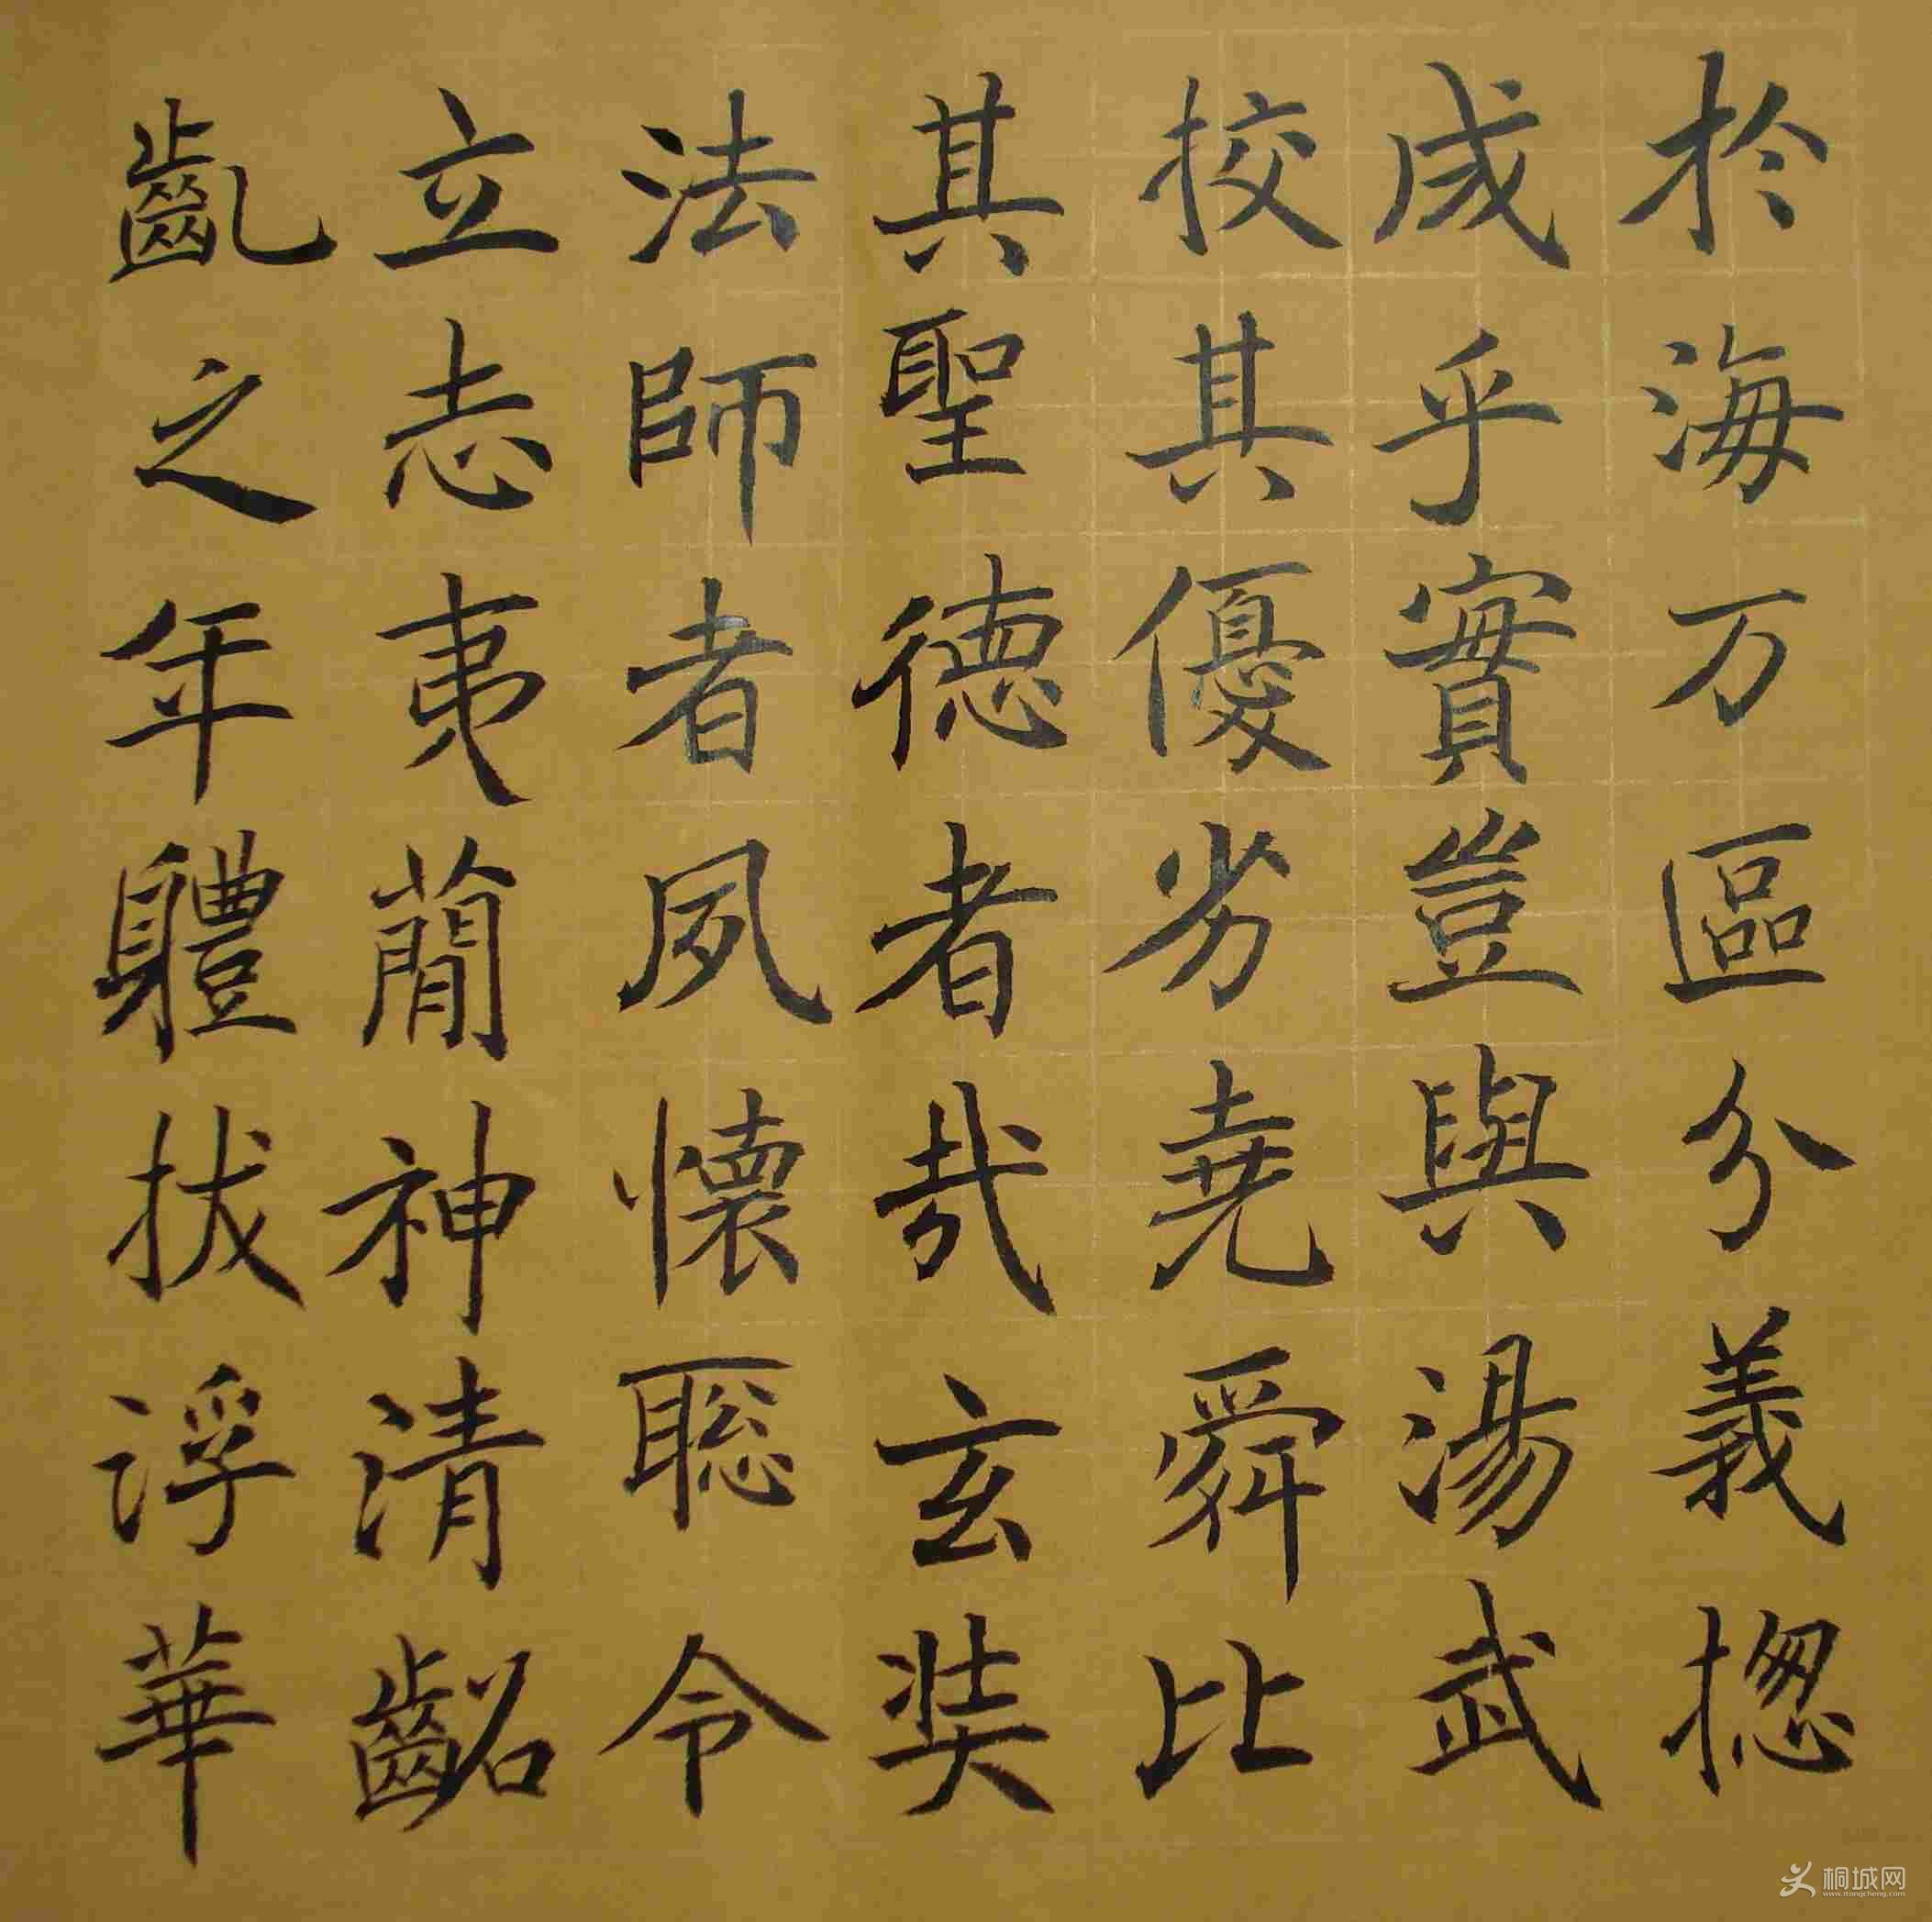 於海万區分義揔
成乎實豈與湯武
挍其優劣堯舜比
其聖德者哉玄奘
法師者夙懷聡令
立志夷蕳神清齠
齓之年軆拔浮華
桐城网
www.itongcheng.com